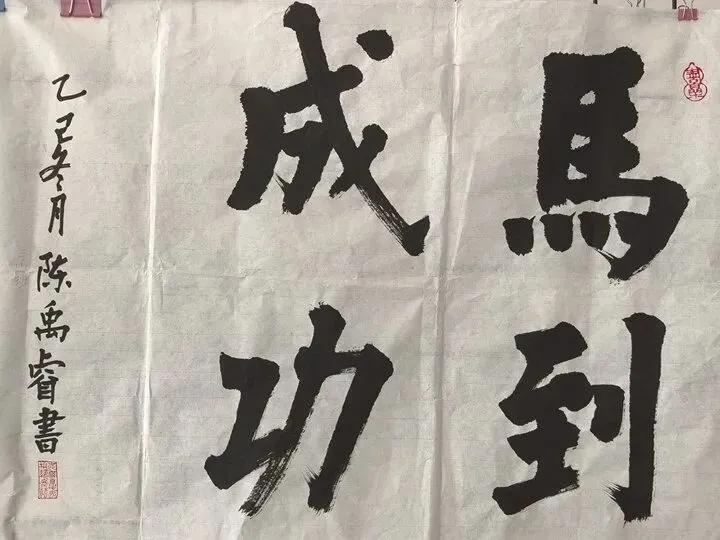 馬到
成功
乙巳冬月 陈禹睿書